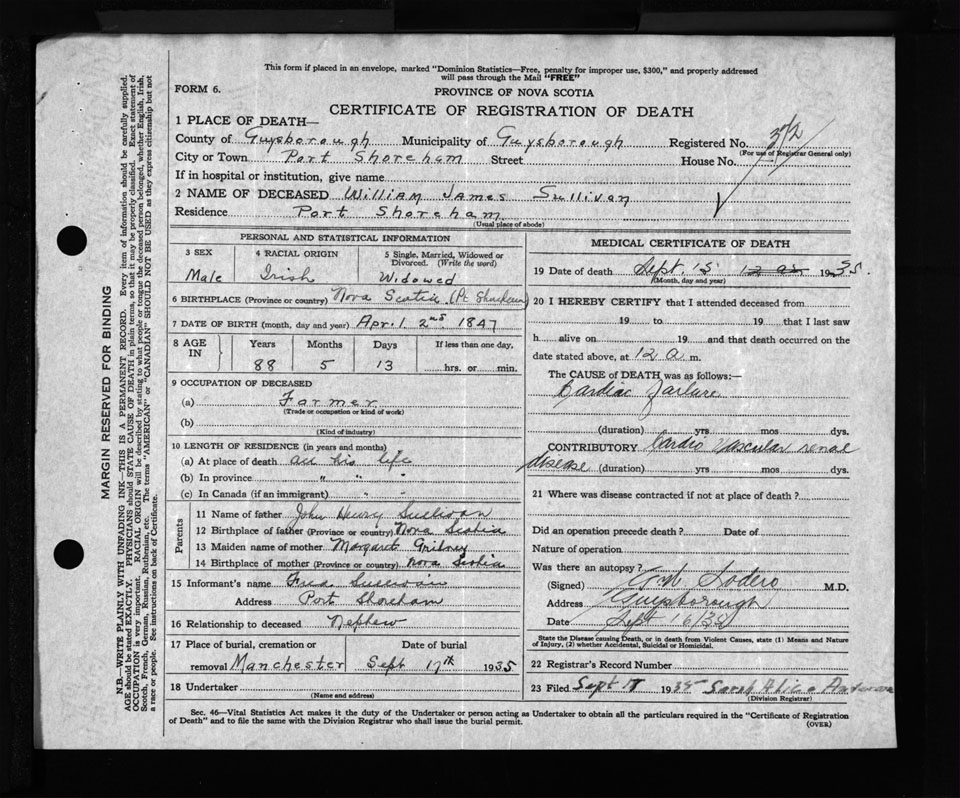 This form if placed in an envelope, marked "Dominion Statistics—Free, penalty for improper use, $300," and properly addressed
will pass through the Mail "FREE"
FORM 6.
PROVINCE OF NOVA SCOTIA
CERTIFICATE OF REGISTRATION OF DEATH
1 PLACE OF DEATH—
County of Guysborough Municipality of Guysborough Registered No. 372
(For use of Registrar General only)
City or Town Port Shoreham Street House No.
If in hospital or institution, give name
2 NAME OF DECEASED William James Sullivan
Residence Port Shoreham
(Usual place of abode)
PERSONAL AND STATISTICAL INFORMATION
3 SEX 4 RACIAL ORIGIN 5 Single, Married, Widowed or
Divorced. (Write the word)
Male Irish Widowed
6 BIRTHPLACE (Province or country) Nova Scotia (Pt Shoreham)
7 DATE OF BIRTH (month, day and year) April 2nd 1847
8 AGE IN Years Months Days If less than one day,
88 5 13 hrs. or min.
9 OCCUPATION OF DECEASED
(a) Farmer
(Trade or occupation or kind of work)
(b)
(Kind of industry)
10 LENGTH OF RESIDENCE (in years and months)
(a) At place of death all his life
(b) In province " " "
(c) In Canada (if an immigrant) " "
Parents
11 Name of father John Henry Sullivan
12 Birthplace of father (Province or country) Nova Scotia
13 Maiden name of mother Margaret
14 Birthplace of mother (Province or country) Nova Scotia
15 Informant's name Fred Sullivan
Address Port Shoreham
16 Relationship to deceased Nephew
17 Place of burial, cremation or Date of burial
removal Manchester Sept 17th 1935
18 Undertaker
(Name and address)
MEDICAL CERTIFICATE OF DEATH
19 Date of death Sept. 15 1935.
(Month, day and year)
20 I HEREBY CERTIFY that I attended deceased from
19 to 19 that I last saw
h alive on 19 and that death occurred on the
date stated above, at 12 a m.
The CAUSE of DEATH was as follows:—
Cardiac Failure
(duration) yrs mos dys.
CONTRIBUTORY Cardio Vascular renal
disease (duration) yrs. mos dys.
21 Where was disease contracted if not at place of death?
Did an operation precede death? Date of
Nature of operation
Was there an autopsy?
(Signed) Sodero M.D.
Address Guysborough
Date Sept 16/35
State the Disease causing Death, or in death from Violent Causes, state (1) Means and Nature
of Injury, (2) whether Accidental, Suicidal or Homicidal.
22 Registrar's Record Number
23 Filed Sept 17 1935 Sarah Alice
(Division Registrar)
Sec. 46—Vital Statistics Act makes it the duty of the Undertaker or person acting as Undertaker to obtain all the particulars required in the "Certificate of Registration
of Death" and to file the same with the Division Registrar who shall issue the burial permit.
(OVER)
MARGIN RESERVED FOR BINDING
N.B.—WRITE PLAINLY WITH UNFADING INK—THIS IS A PERMANENT RECORD. Every item of information should be carefully supplied.
AGE should be stated EXACTLY. PHYSICIANS should STATE CAUSE OF DEATH in plain terms, so that it may be properly classified. Exact statement of
OCCUPATION is very important. RACIAL ORIGIN will be described by stating to what people or tongue the deceased person belonged, whether English, Irish,
Scotch, French, German, Russian, Ruthenian, etc. The terms "AMERICAN" or "CANADIAN" SHOULD NOT BE USED as they express citizenship but not
a race or people. See instructions on back of Certificate.